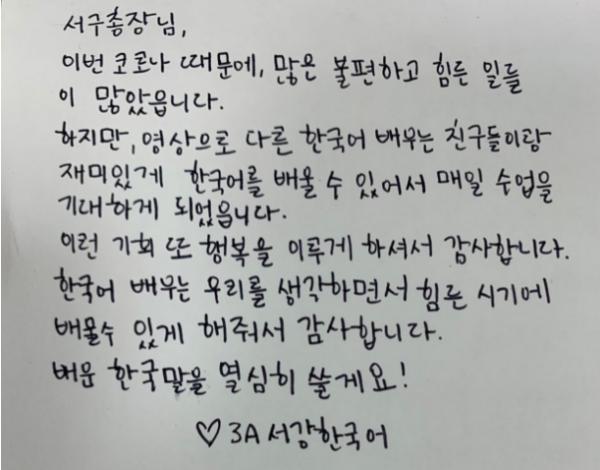 서구총장님,
이번 코로나 때문에, 많은 불편하고 힘든 일들
이 많았읍니다.
하지만, 영상으로 다른 한국어 배우는 친구들이랑
재미있게 한국어를 배울 수 있어서 매일 수업을
기대하게 되었읍니다.
이런 기회 또 행복을 이루게 하셔서 감사합니다.
한국어 배우는 우리를 생각하면서 힘든 시기에
배울수 있게 해줘서 감사합니다.
배운 한국말을 열심히 쓸게요!
♡ 3A 서강한국어